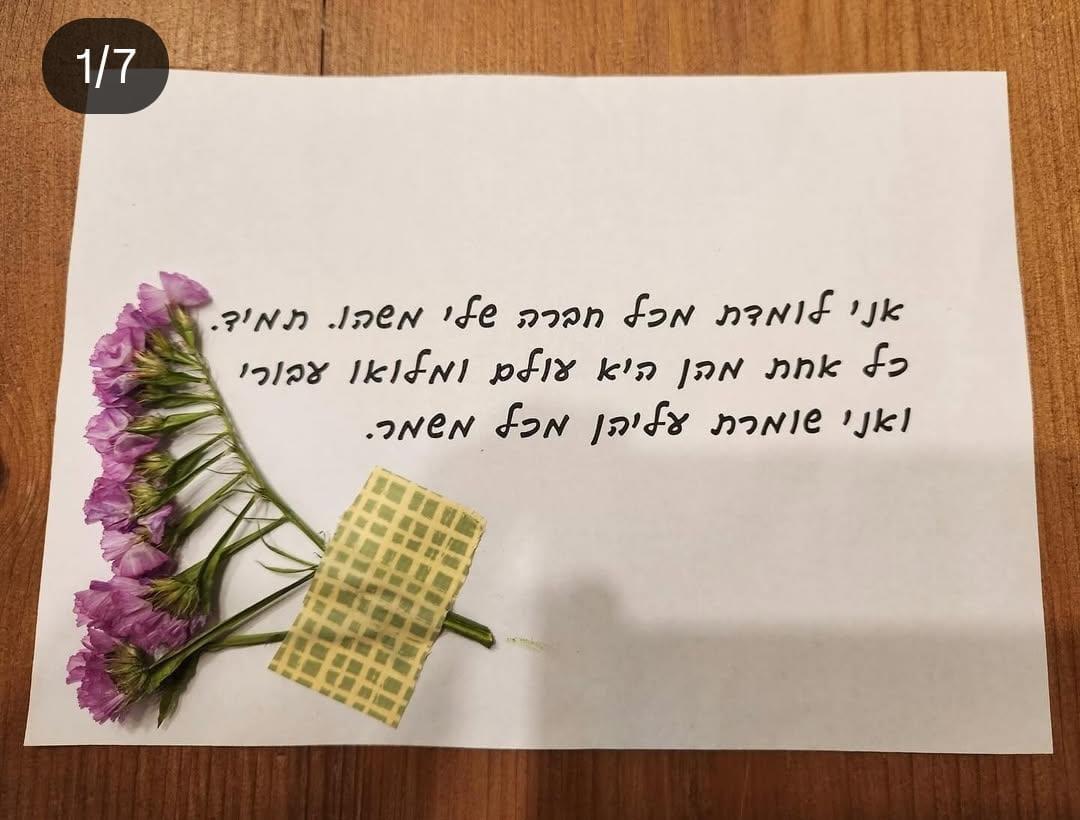 1/7
אני לומדת מכל חברה שלי משהו. תמיד.
כל אחת מהן היא עולם ומלואו עבורי
ואני שומרת עליהן מכל משמר.